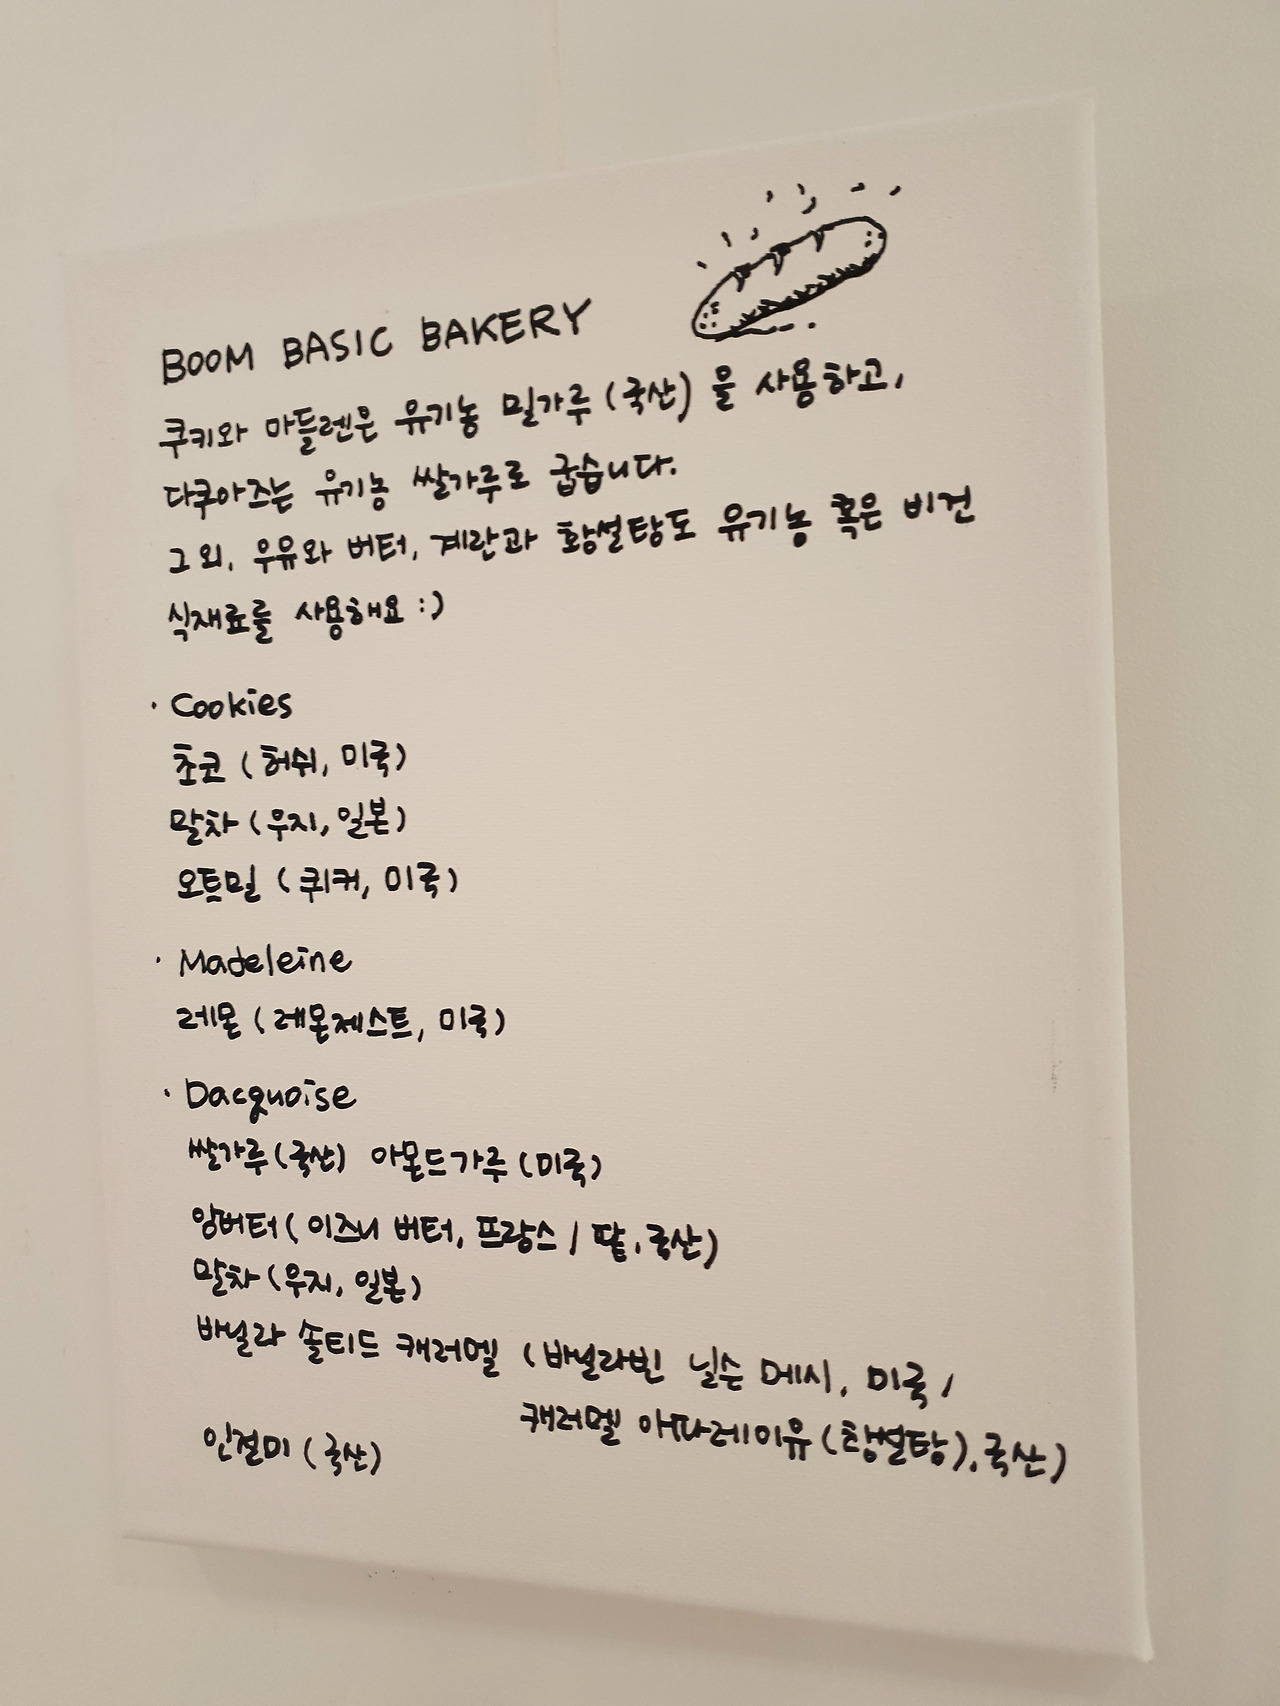 BOOM BASIC BAKERY
쿠키와 마들렌은 유기농 밀가루(국산)을 사용하고,
다쿠아즈는 유기농 쌀가루로 굽습니다.
그 외, 우유와 버터, 계란과 황설탕도 유기농 혹은 비건
식재료를 사용해요 :)
· Cookies
초코 (허쉬, 미국)
말차 (우지, 일본)
오트밀 (퀴커, 미국)
· Madeleine
레몬 (레몬제스트, 미국)
· Dacquoise
쌀가루(국산) 아몬드가루 (미국)
앙버터 (이즈니 버터, 프랑스 / 팥, 국산)
말차 (우지, 일본)
바닐라 솔티드 캐러멜 (바닐라빈 닐슨 메시, 미국 /
캐러멜 아따레이유 (황설탕), 국산)
인절미 (국산)